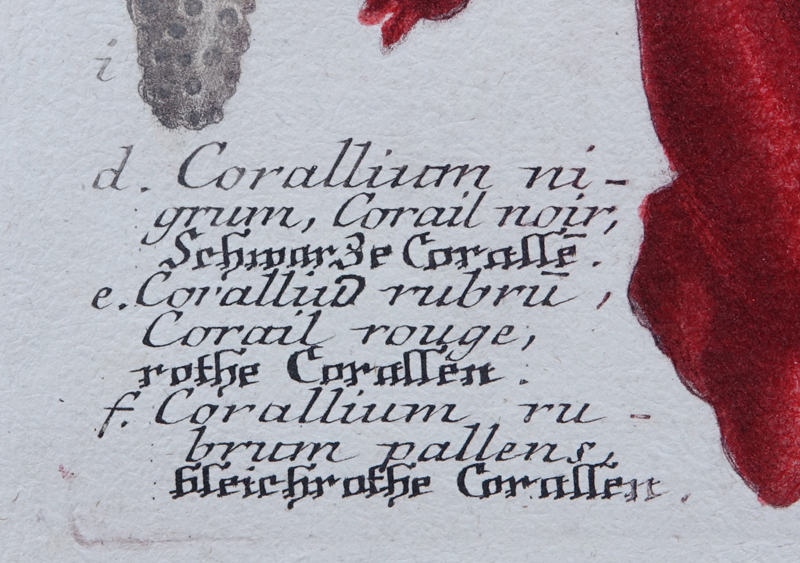 i
d. Corallium ni-
grum, Corail noir,
Schwarze Corallē.
e. Coralliuɔ rubrū,
Corail rouge,
rothe Corallen.
f. Corallium ru-
brum pallens,
bleichrothe Corallen.